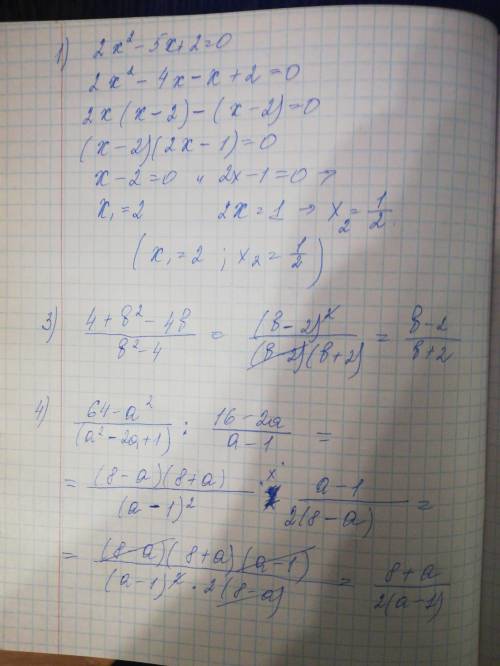 1) 2x² - 5x + 2 = 0
2x² - 4x - x + 2 = 0
2x(x - 2) - (x - 2) = 0
(x - 2)(2x - 1) = 0
x - 2 = 0 и 2x - 1 = 0 →
x₁ = 2 2x = 1 → x₂ = 1/2
(x₁ = 2 ; x₂ = 1/2)
3) (4 + b² - 4b)/(b² - 4) = (b - 2)²/((b - 2)(b + 2)) = (b - 2)/(b + 2)
4) (64 - a²)/(a² - 2a + 1) : (16 - 2a)/(a - 1) =
= (8 - a)(8 + a)/(a - 1)² x (a - 1)/(2(8 - a)) =
= (8 - a)(8 + a)(a - 1)/((a - 1)² · 2(8 - a)) = (8 + a)/(2(a - 1))